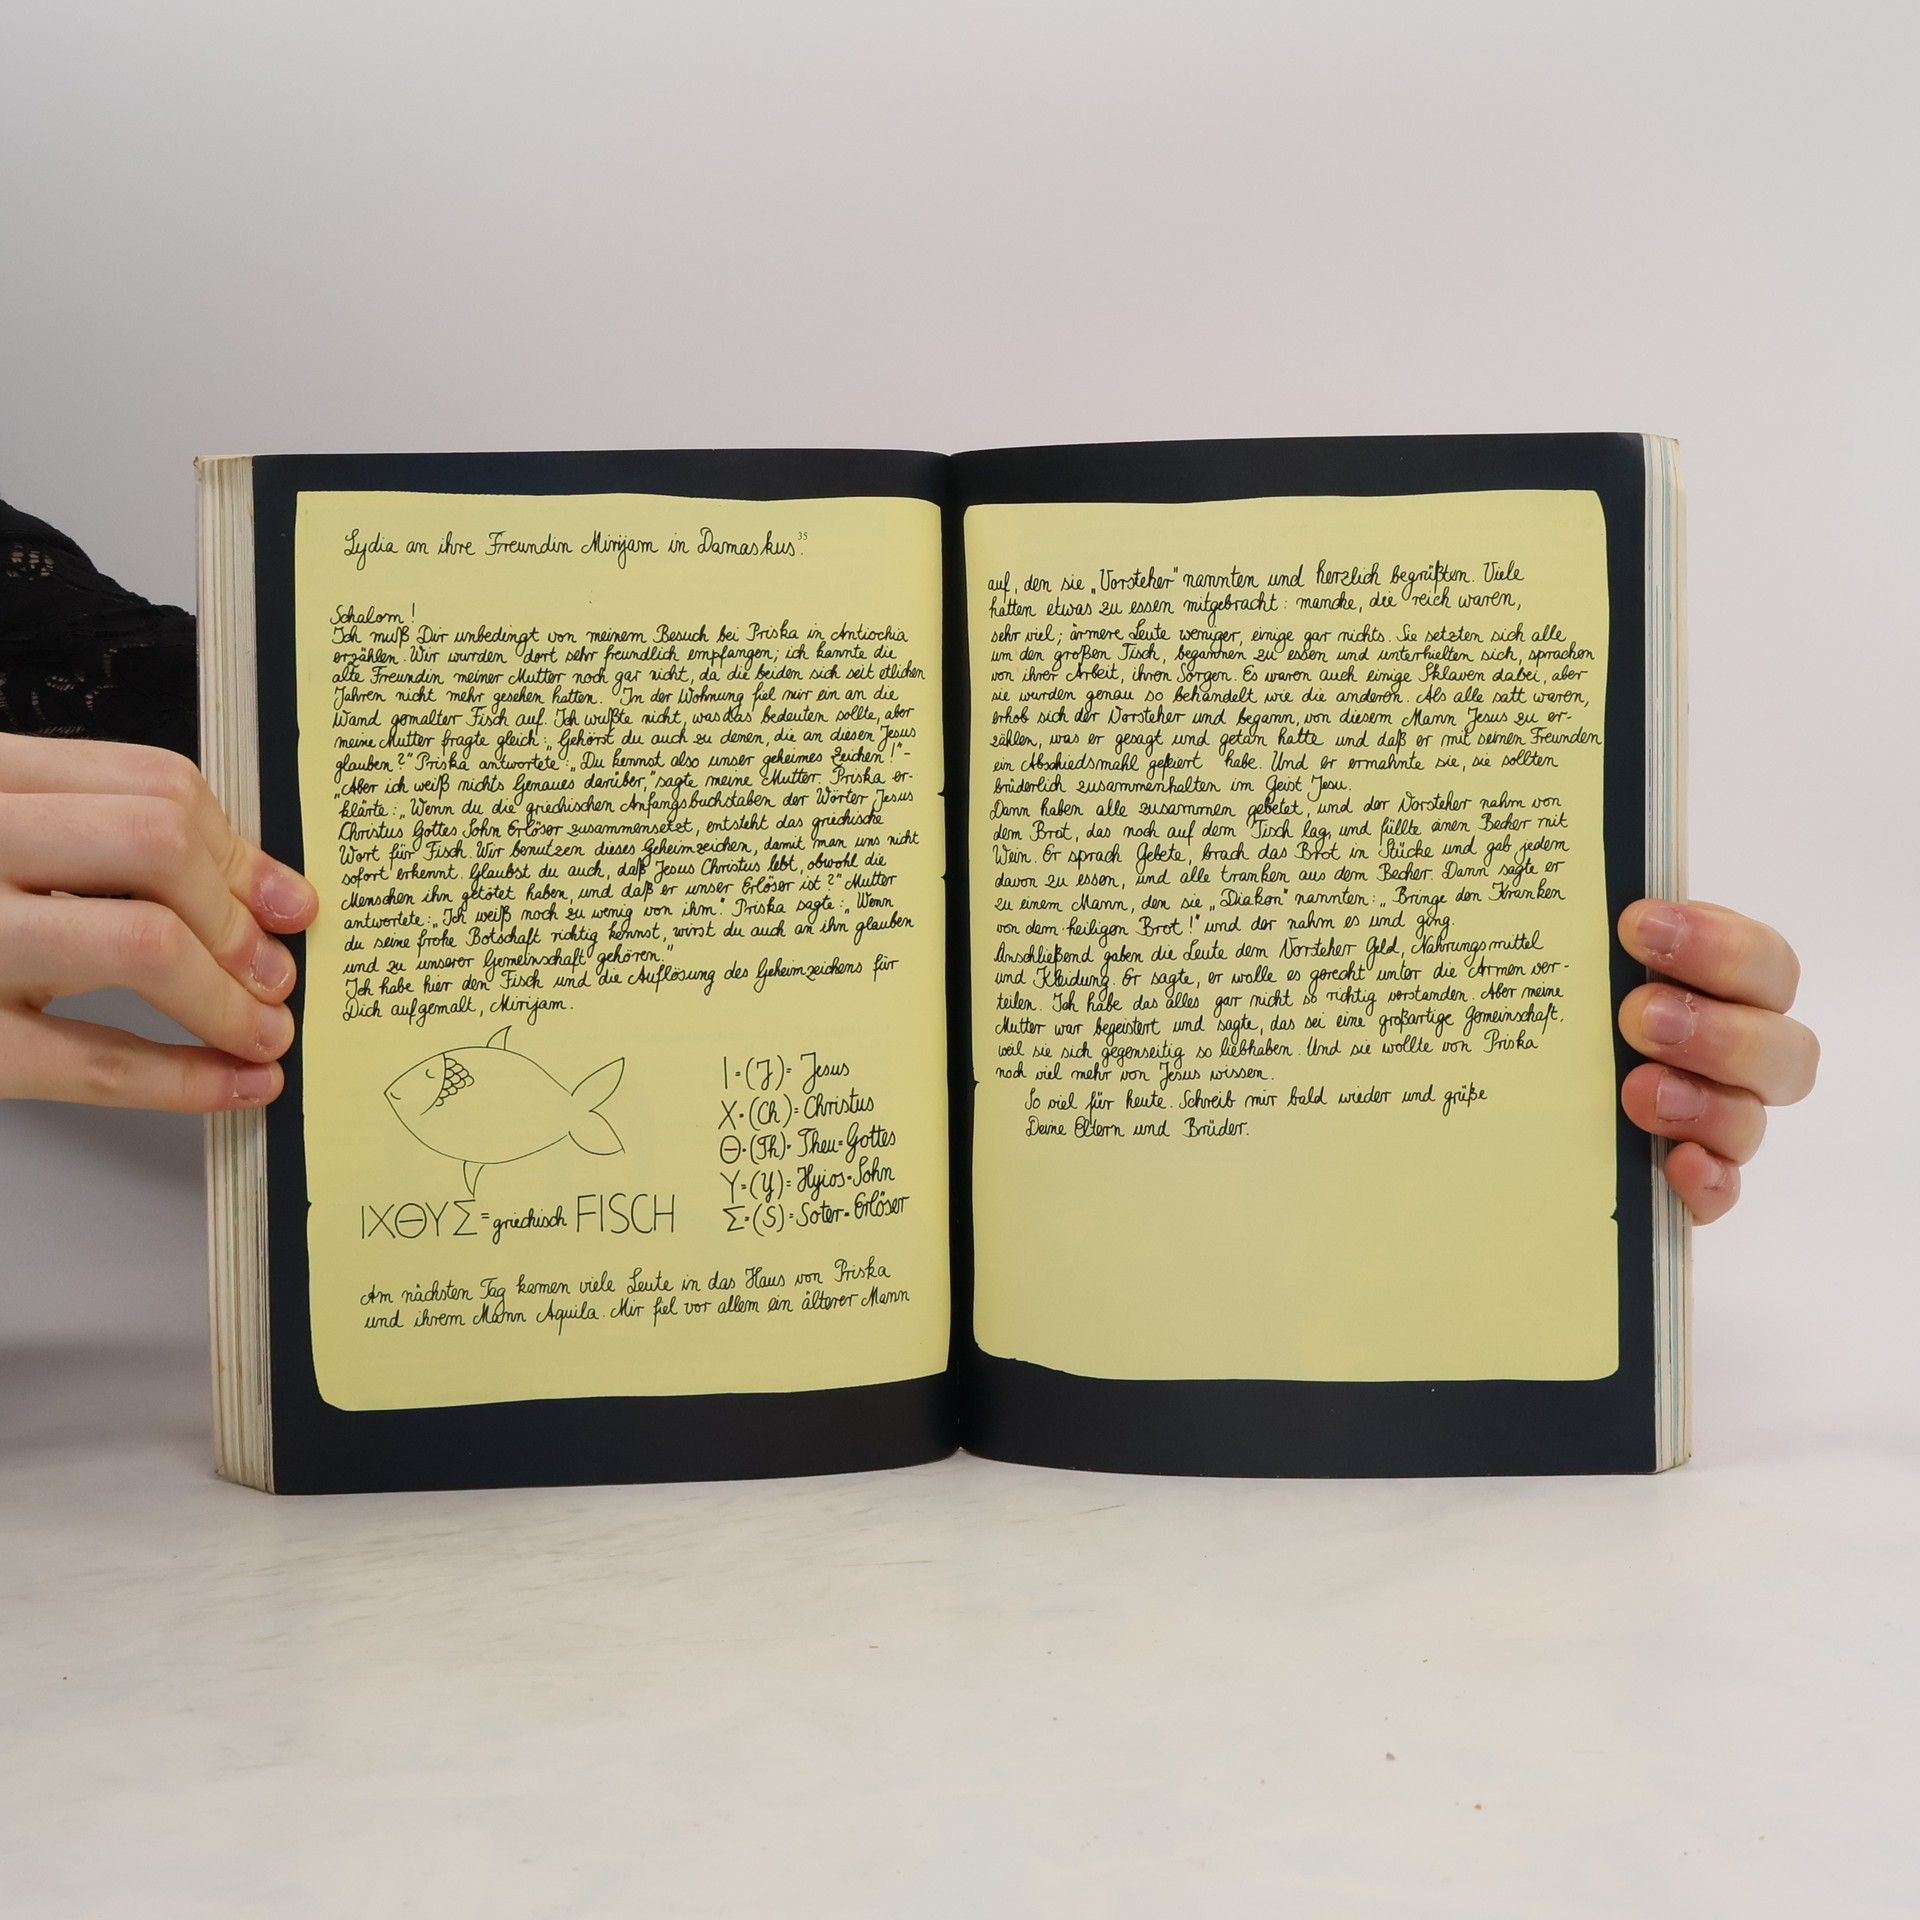 Lydia an ihre Freundin Mirijam in Damaskus.³⁵
Schalom!
Ich muß Dir unbedingt von meinem Besuch bei Priska in Antiochia
erzählen. Wir wurden dort sehr freundlich empfangen; ich kannte die
alte Freundin meiner Mutter noch gar nicht, da die beiden sich seit etlichen
Jahren nicht mehr gesehen hatten. In der Wohnung fiel mir ein an die
Wand gemalter Fisch auf. Ich wußte nicht, was das bedeuten sollte, aber
meine Mutter fragte gleich: „Gehörst du auch zu denen, die an diesen Jesus
glauben?" Priska antwortete: „Du kennst also unser geheimes Zeichen!"-
„Aber ich weiß nichts Genaues darüber," sagte meine Mutter. Priska er-
klärte: „Wenn du die griechischen Anfangsbuchstaben der Wörter Jesus
Christus Gottes Sohn Erlöser zusammensetzt, entsteht das griechische
Wort für Fisch. Wir benutzen dieses Geheimzeichen, damit man uns nicht
sofort erkennt. Glaubst du auch, daß Jesus Christus lebt, obwohl die
Menschen ihn getötet haben, und daß er unser Erlöser ist?" Mutter
antwortete: „Ich weiß noch zu wenig von ihm." Priska sagte: „Wenn
du seine frohe Botschaft richtig kennst, wirst du auch an ihn glauben
und zu unserer Gemeinschaft gehören."
Ich habe hier den Fisch und die Auflösung des Geheimzeichens für
Dich aufgemalt, Mirijam.
I=(J)= Jesus
X=(Ch)= Christus
Θ=(Th)= Theu=Gottes
Y=(Y)= Hyios=Sohn
Σ=(S)= Soter=Erlöser
IXΘYΣ = griechisch FISCH
Am nächsten Tag kamen viele Leute in das Haus von Priska
und ihrem Mann Aquila. Mir fiel vor allem ein älterer Mann
auf, den sie „Vorsteher" nannten und herzlich begrüßten. Viele
hatten etwas zu essen mitgebracht: manche, die reich waren,
sehr viel; ärmere Leute weniger, einige gar nichts. Sie setzten sich alle
um den großen Tisch, begannen zu essen und unterhielten sich, sprachen
von ihrer Arbeit, ihren Sorgen. Es waren auch einige Sklaven dabei, aber
sie wurden genau so behandelt wie die anderen. Als alle satt waren,
erhob sich der Vorsteher und begann, von diesem Mann Jesus zu er-
zählen, was er gesagt und getan hatte und daß er mit seinen Freunden
ein Abschiedsmahl gefeiert habe. Und er ermahnte sie, sie sollten
brüderlich zusammenhalten im Geist Jesu.
Dann haben alle zusammen gebetet, und der Vorsteher nahm von
dem Brot, das noch auf dem Tisch lag, und füllte einen Becher mit
Wein. Er sprach Gebete, brach das Brot in Stücke und gab jedem
davon zu essen, und alle tranken aus dem Becher. Dann sagte er
zu einem Mann, den sie „Diakon" nannten: „Bringe den Kranken
von dem heiligen Brot!" und der nahm es und ging.
Anschließend gaben die Leute dem Vorsteher Geld, Nahrungsmittel
und Kleidung. Er sagte, er wolle es gerecht unter die Armen ver-
teilen. Ich habe das alles gar nicht so richtig verstanden. Aber meine
Mutter war begeistert und sagte, das sei eine großartige Gemeinschaft,
weil sie sich gegenseitig so liebhaben. Und sie wollte von Priska
noch viel mehr von Jesus wissen.
So viel für heute. Schreib mir bald wieder und grüße
Deine Eltern und Brüder.